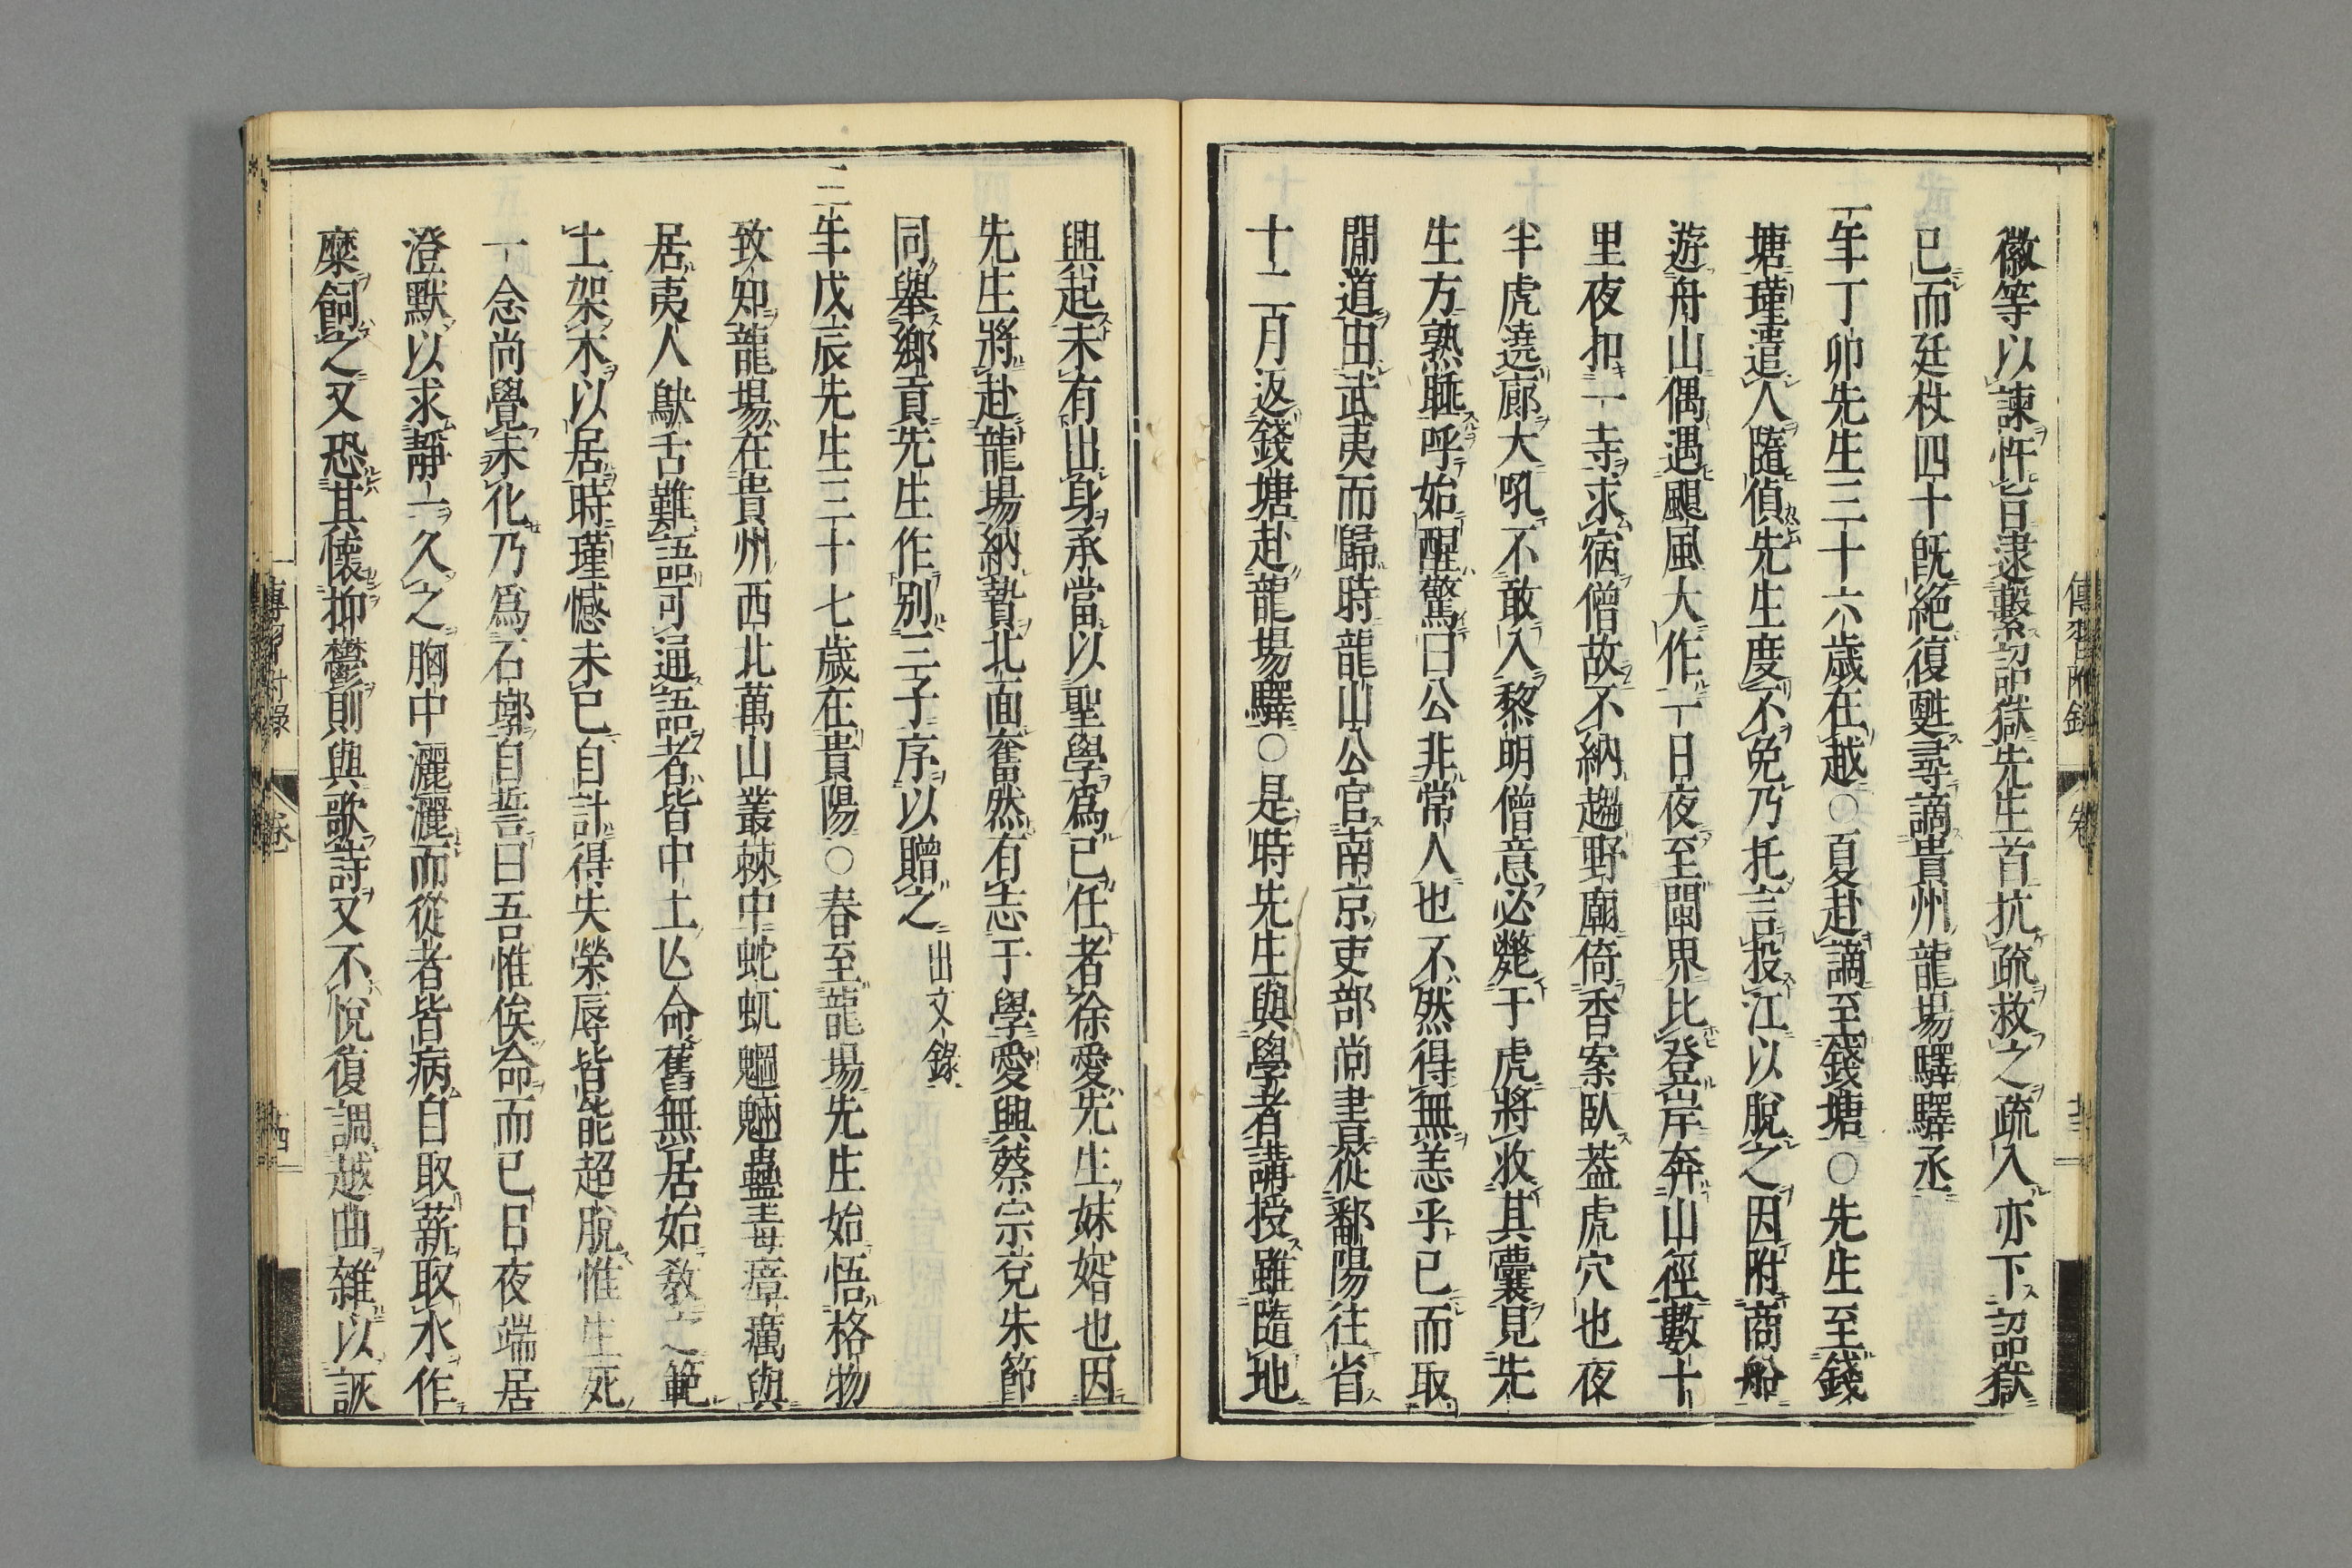 徽等以諫忤旨逮繫詔獄先生首抗疏救之疏入亦下詔獄
已而廷杖四十旣絶復甦尋謫貴州龍場驛驛丞
二年丁卯先生三十六歲在越○夏赴謫至錢塘○先生至錢
塘瑾遣人隨偵先生度不免乃托言投江以脫之因附商船
遊舟山偶遇颶風大作一日夜至閩界比登岸奔山徑數十
里夜扣一寺求宿僧故不納趨野廟倚香案臥蓋虎穴也夜
半虎遶廊大吼不敢入黎明僧意必斃于虎將收其囊見先
生方熟睡呼始醒驚曰公非常人也不然得無恙乎已而取
間道由武夷而歸時龍山公官南京吏部尚書從鄱陽往省
十二月返錢塘赴龍場驛○是時先生與學者講授雖隨地
興起未有出身承當以聖學爲己任者徐愛先生妹婿也因
先生將赴龍場納贄北面奮然有志于學愛與蔡宗兗朱節
同舉鄉貢先生作別三子序以贈之 出文錄
三年戊辰先生三十七歲在貴陽○春至龍場先生始悟格物
致知龍場在貴州西北萬山叢棘中蛇虺魍魎蠱毒瘴癘與
居夷人鴃舌難語可通語者皆中土亡命舊無居始敎之範
土架木以居時瑾憾未已自計得失榮辱皆能超脫惟生死
一念尚覺未化乃爲石墎自誓曰吾惟俟命而已日夜端居
澄默以求靜一久之胸中灑灑而從者皆病自取薪取水作
糜飼之又恐其懷抑鬱則與歌詩又不悅復調越曲雜以詼
傳習附錄
卷
傳習附錄
卷